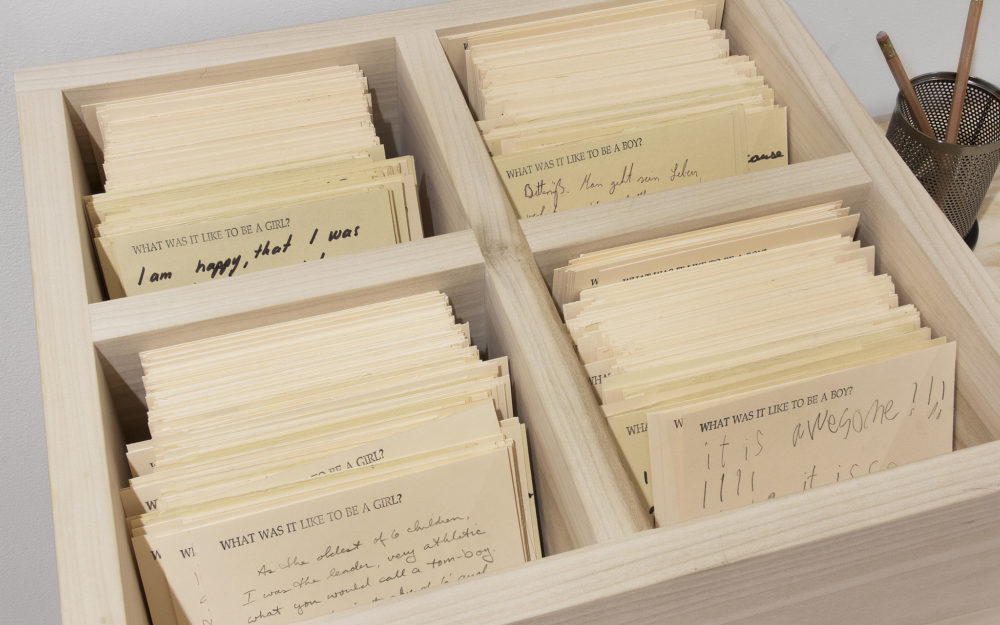 WHAT WAS IT LIKE TO BE A GIRL?
I am happy, that I was
WHAT WAS IT LIKE TO BE A BOY?
Man geht sein Leben,
ause
TO BE A GIRL?
WHAT WAS IT LIKE TO BE A GIRL?
As the oldest of 6 children,
I was the leader, very athletic
what you would call a tom-boy.
WHAT WAS IT LIKE TO BE A BOY?
WHA
WHA
W
WHAT WAS IT LIKE TO BE A BOY?
it is awesome !!!
!!!! it is co